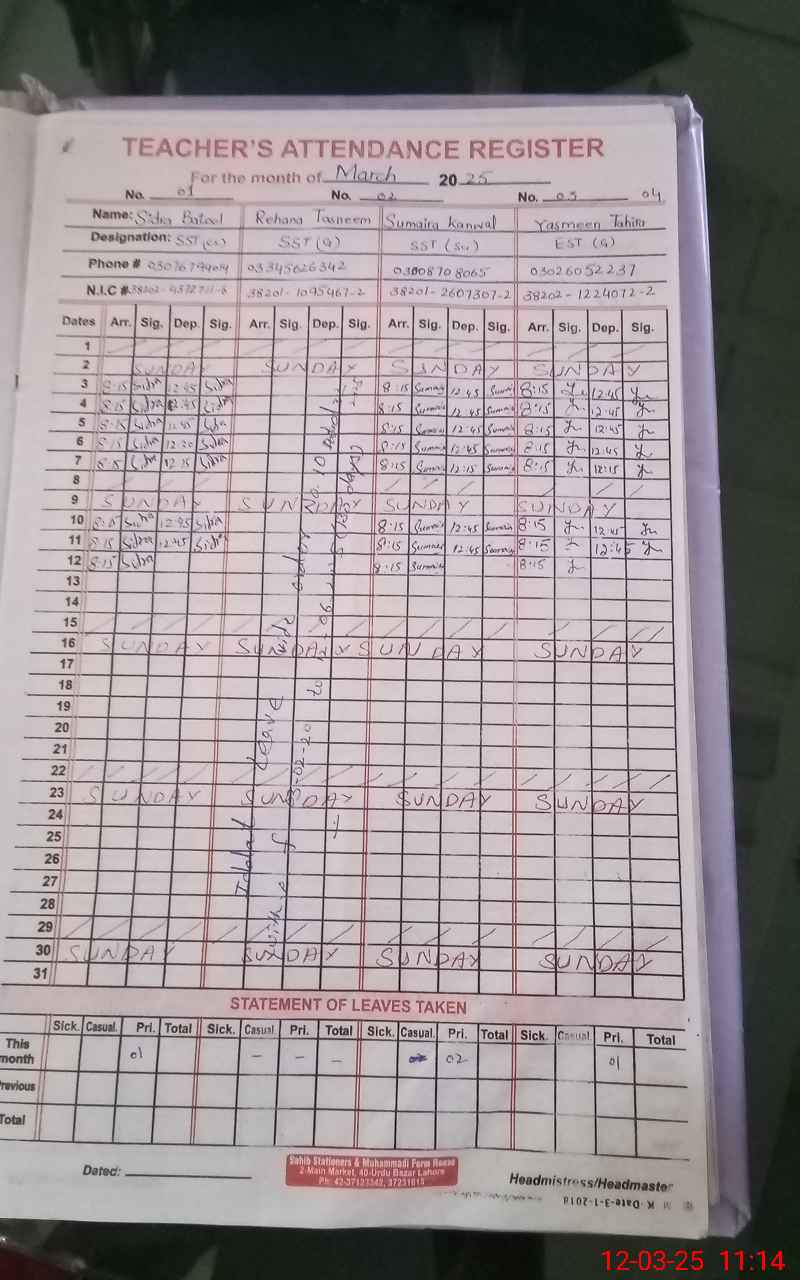 TEACHER'S ATTENDANCE REGISTER
For the month of March 2025
No. 01 No. 02 No. 03 04
Name: Sidra Batool Rehana Tasneem Sumaira Kanwal Yasmeen Tahira
Designation: SST (G) SST (Sc) EST (G)
Phone # 03345626342 03008708065 03026052237
N.I.C # 38201-1095467-2 38201-2607307-2 38202-1224072-2
Dates Arr. Sig. Dep. Sig. Arr. Sig. Dep. Sig. Arr. Sig. Dep. Sig. Arr. Sig. Dep. Sig.
1
2 SUNDAY SUNDAY SUNDAY SUNDAY
3 8:15 Sidra 12:45 Sidra 8:15 Sumaira 12:45 Sumaira 8:15 12:45
4 8:15 Sidra 12:45 Sidra 8:15 Sumaira 12:45 Sumaira 8:15 12:45
5 8:15 Sidra 12:45 Sidra 8:15 Sumaira 12:45 Sumaira 8:15 12:45
6 8:15 Sidra 12:20 Sidra 8:15 Sumaira 12:45 Sumaira 8:15 12:45
7 8:15 Sidra 12:15 Sidra 8:15 Sumaira 12:15 Sumaira 8:15 12:15
8
9 SUNDAY SUNDAY SUNDAY SUNDAY
10 8:15 Sidra 12:45 Sidra 8:15 Sumaira 12:45 Sumaira 8:15 12:45
11 8:15 Sidra 12:45 Sidra 8:15 Sumaira 12:45 Sumaira 8:15 12:45
12 8:15 Sidra 8:15 Sumaira 8:15
13
14
15
16 SUNDAY SUNDAY SUNDAY SUNDAY
17
18
19
20
21
22
23 SUNDAY SUNDAY SUNDAY SUNDAY
24
25
26
27
28
29
30 SUNDAY SUNDAY SUNDAY SUNDAY
31
Iddat leave vide order No. 10
STATEMENT OF LEAVES TAKEN
Sick. Casual. Pri. Total Sick. Casual. Pri. Total Sick. Casual. Pri. Total Sick. Casual. Pri. Total
This month 01 - - - 02 01
Previous
Total
Dated:
Sahib Stationers & Muhammadi Form House
2-Main Market, 40-Urdu Bazar Lahore
Ph: 42-37123342, 37231615
Headmistress/Headmaster
M K Date-3-1-2018
12-03-25 11:14